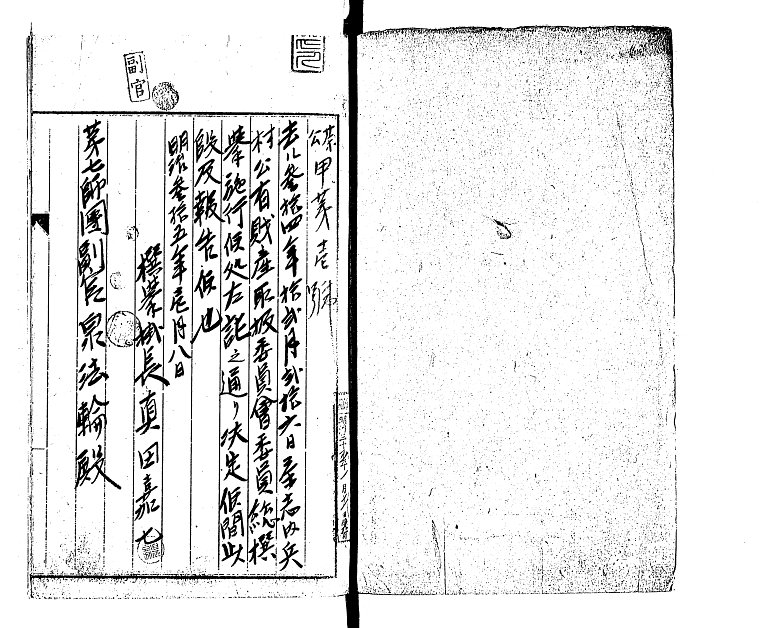 副官
公第甲第壱號
去ル参拾四年拾弐月弐拾六日屋志内兵
村公有財産取扱委員會委員総撰
挙施行候処左記之通リ決定候間此
段及報告候也
明治参拾五年壱月八日
撰挙掛長真田嘉七
第七師團副官泉法輪殿